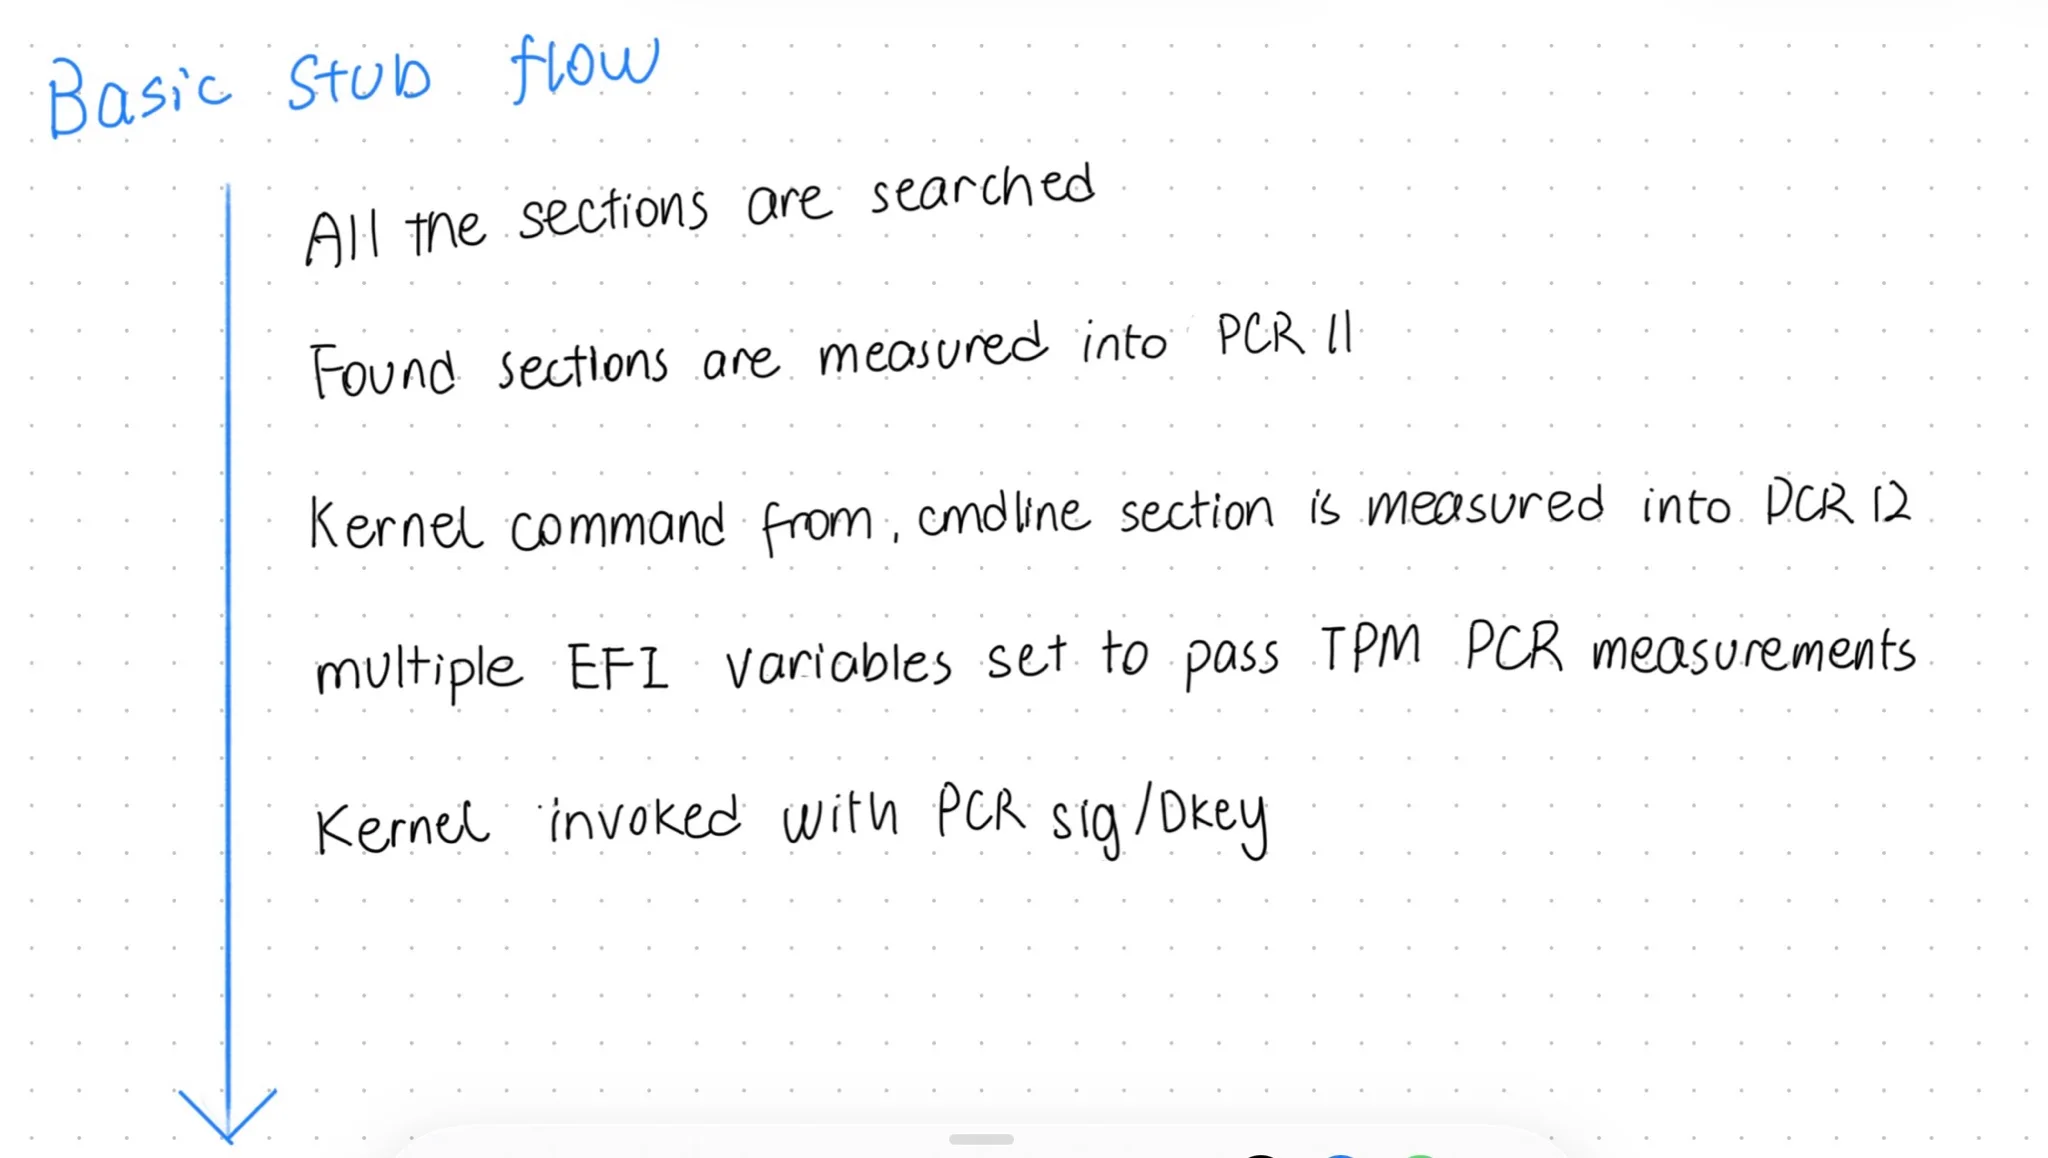 Basic stub flow
All the sections are searched
Found sections are measured into PCR 11
Kernel command from .cmdline section is measured into PCR 12
multiple EFI variables set to pass TPM PCR measurements
Kernel invoked with PCR sig/Pkey